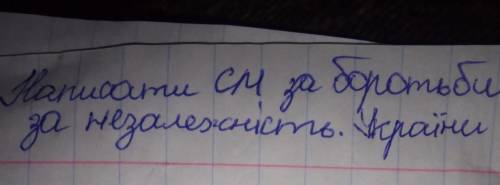 Написати СМ за боротьби
за незалежність. України